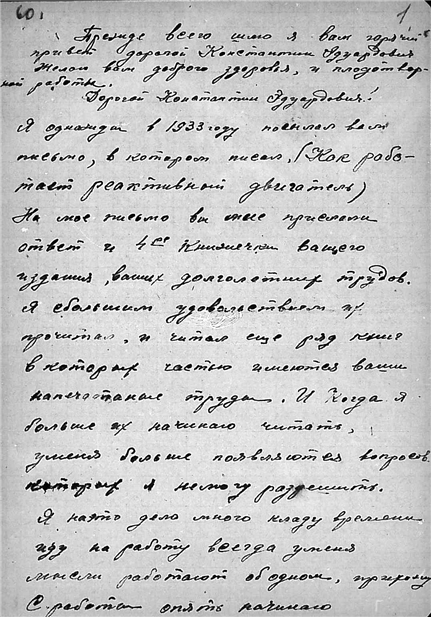 60. 1
Прежде всего шлю я вам горячий
привет дорогой Константин Эдуардович
Желаю вам доброго здоровья, и плодотвор-
ной работы.
Дорогой Константин Эдуардович!
Я однажды в 1933 году посылал вам
письмо, в котором писал, (Как рабо-
тает реактивный двигатель)
На мое письмо вы мне прислали
ответ и 4ре книжечки вашего
издания, ваших долголетних трудов.
Я сбольшим удовольствием их
прочитал, и читал еще ряд книг
в которых частью имеются ваши
напечатаные труды. И когда я
больше их начинаю читать,
уменя больше появляются вопросов
которых я немогу разрешить.
Я наэто дело много кладу времени
иду на работу всегда уменя
мысли работают ободном, прихожу
С работы опять начинаю